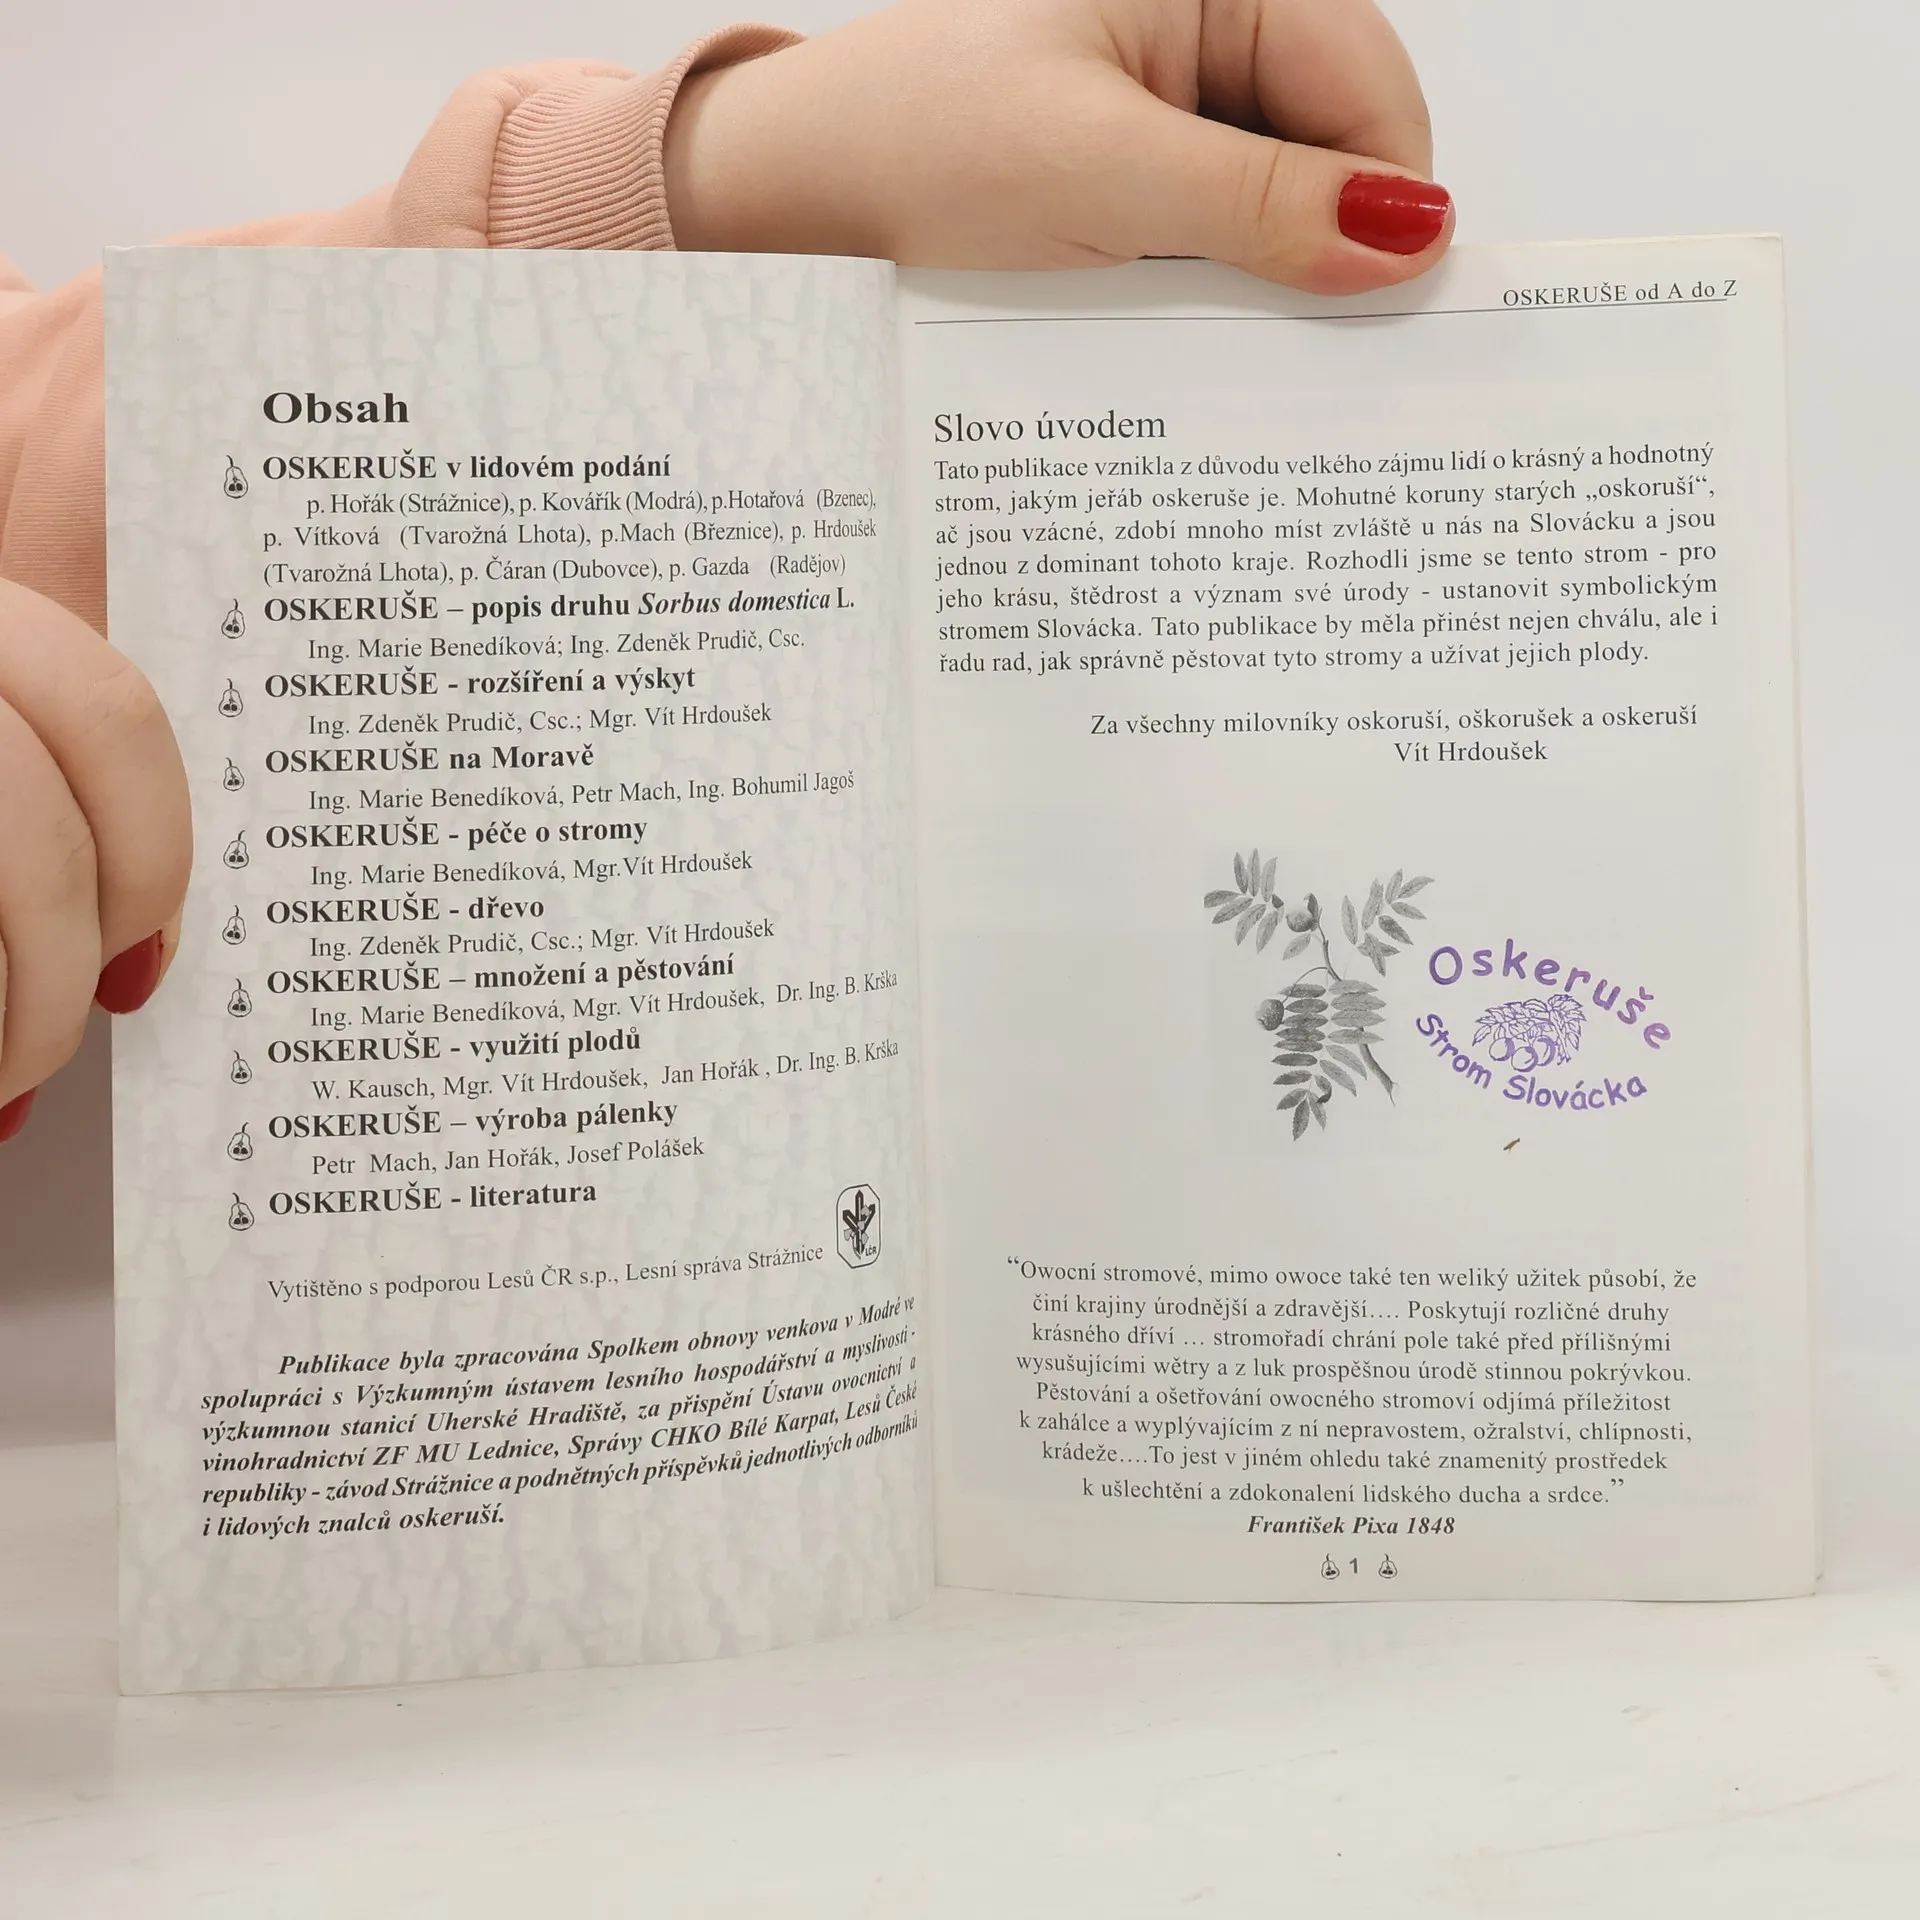 Obsah
OSKERUŠE v lidovém podání
p. Hořák (Strážnice), p. Kovářík (Modrá), p.Hotařová (Bzenec),
p. Vítková (Tvarožná Lhota), p.Mach (Březnice), p. Hrdoušek
(Tvarožná Lhota), p. Čáran (Dubovce), p. Gazda (Radějov)
OSKERUŠE – popis druhu Sorbus domestica L.
Ing. Marie Benedíková; Ing. Zdeněk Prudič, Csc.
OSKERUŠE - rozšíření a výskyt
Ing. Zdeněk Prudič, Csc.; Mgr. Vít Hrdoušek
OSKERUŠE na Moravě
Ing. Marie Benedíková, Petr Mach, Ing. Bohumil Jagoš
OSKERUŠE - péče o stromy
Ing. Marie Benedíková, Mgr.Vít Hrdoušek
OSKERUŠE - dřevo
Ing. Zdeněk Prudič, Csc.; Mgr. Vít Hrdoušek
OSKERUŠE – množení a pěstování
Ing. Marie Benedíková, Mgr. Vít Hrdoušek, Dr. Ing. B. Krška
OSKERUŠE - využití plodů
W. Kausch, Mgr. Vít Hrdoušek, Jan Hořák , Dr. Ing. B. Krška
OSKERUŠE – výroba pálenky
Petr Mach, Jan Hořák, Josef Polášek
OSKERUŠE - literatura
Vytištěno s podporou Lesů ČR s.p., Lesní správa Strážnice
LČR
Publikace byla zpracována Spolkem obnovy venkova v Modré ve
spolupráci s Výzkumným ústavem lesního hospodářství a myslivosti -
výzkumnou stanicí Uherské Hradiště, za přispění Ústavu ovocnictví a
vinohradnictví ZF MU Lednice, Správy CHKO Bílé Karpat, Lesů České
republiky - závod Strážnice a podnětných příspěvků jednotlivých odborníků
i lidových znalců oskeruší.
OSKERUŠE od A do Z
Slovo úvodem
Tato publikace vznikla z důvodu velkého zájmu lidí o krásný a hodnotný
strom, jakým jeřáb oskeruše je. Mohutné koruny starých „oskoruší“,
ač jsou vzácné, zdobí mnoho míst zvláště u nás na Slovácku a jsou
jednou z dominant tohoto kraje. Rozhodli jsme se tento strom - pro
jeho krásu, štědrost a význam své úrody - ustanovit symbolickým
stromem Slovácka. Tato publikace by měla přinést nejen chválu, ale i
řadu rad, jak správně pěstovat tyto stromy a užívat jejich plody.
Za všechny milovníky oskoruší, oškorušek a oskeruší
Vít Hrdoušek
Oskeruše
Strom Slovácka
“Owocní stromové, mimo owoce také ten weliký užitek působí, že
činí krajiny úrodnější a zdravější…. Poskytují rozličné druhy
krásného dříví … stromořadí chrání pole také před přílišnými
wysušujícími wětry a z luk prospěšnou úrodě stinnou pokrývkou.
Pěstování a ošetřování owocného stromoví odjímá příležitost
k zahálce a wyplývajícím z ní nepravostem, ožralství, chlípnosti,
krádeže….To jest v jiném ohledu také znamenitý prostředek
k ušlechtění a zdokonalení lidského ducha a srdce.”
František Pixa 1848
1